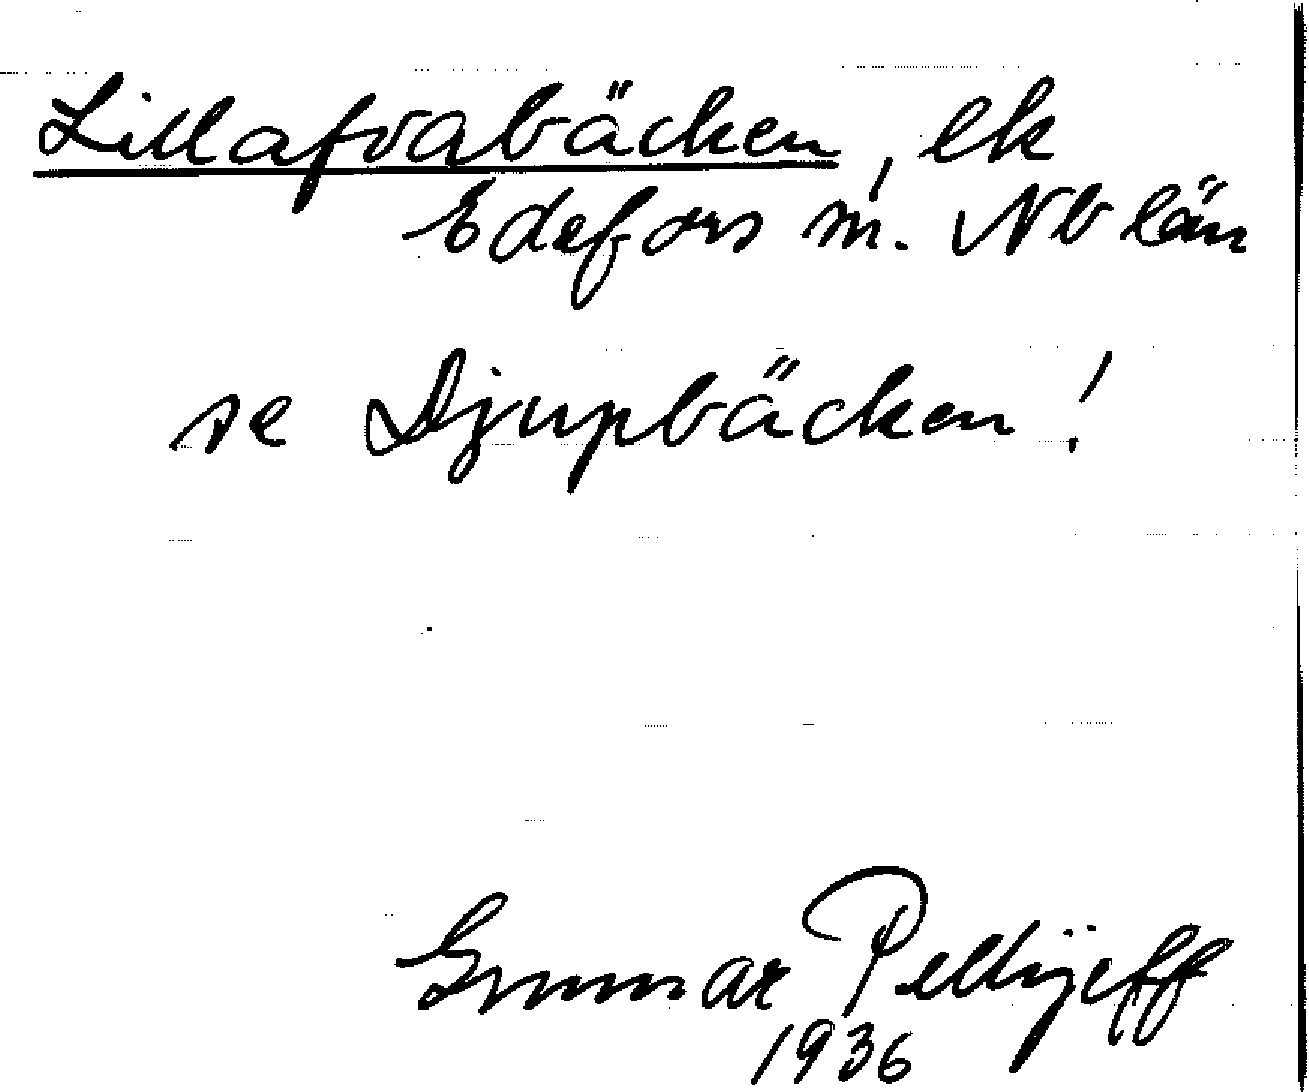 Lillafvabäcken, ek
Edefors sn. Nb län
se Djupbäcken!
Gunnar Pellijeff
1936